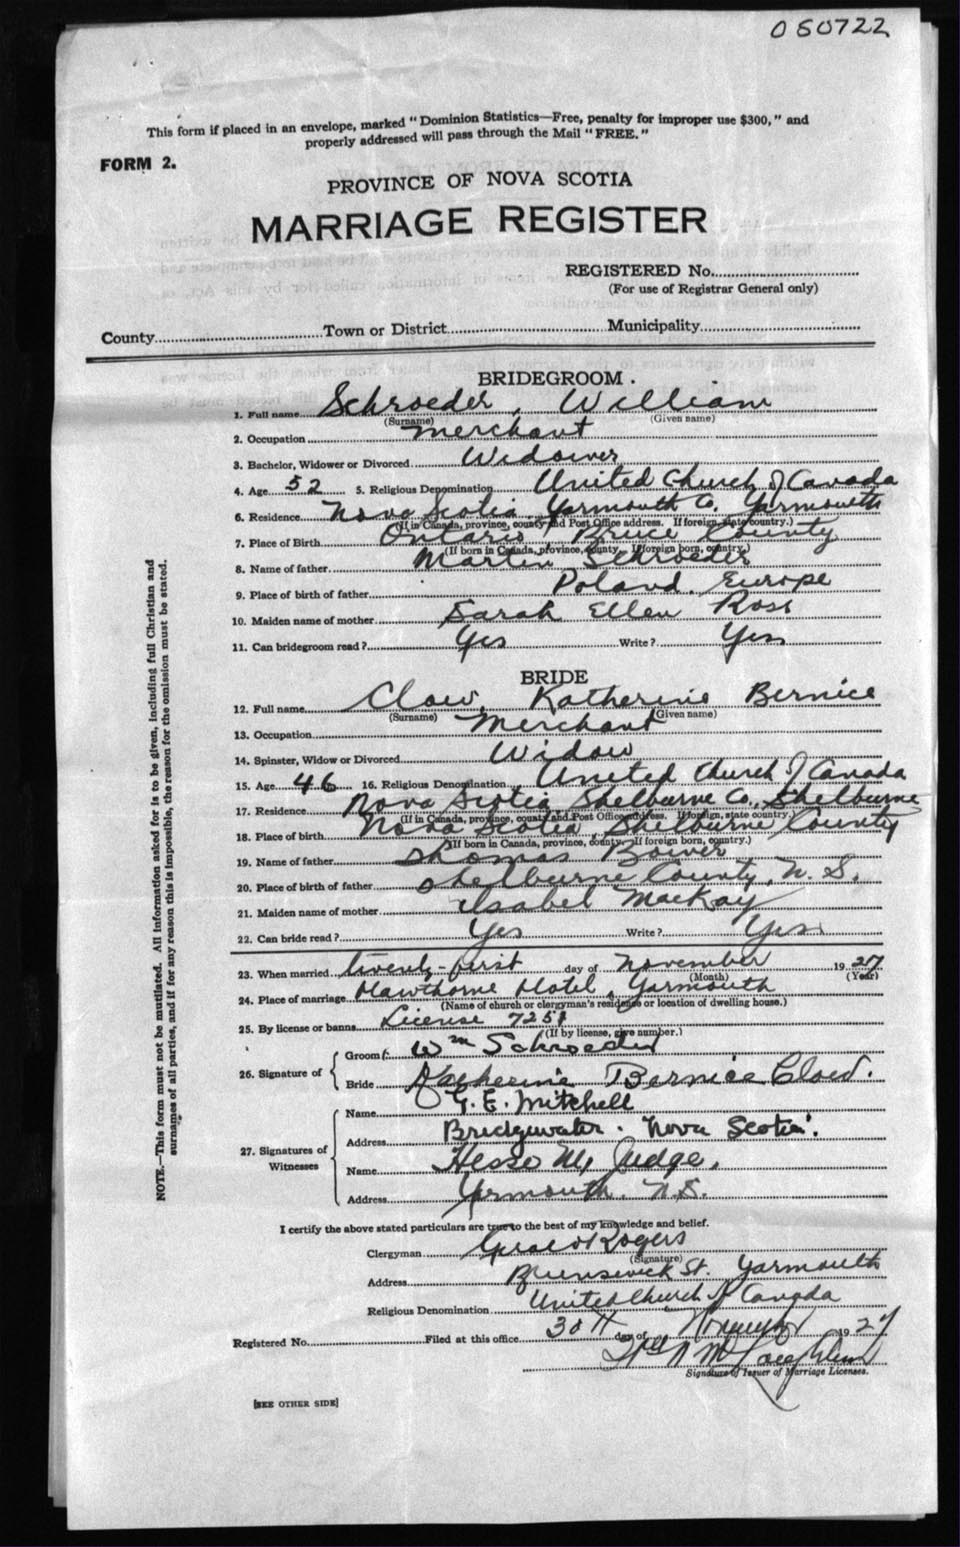 050722
This form if placed in an envelope, marked "Dominion Statistics—Free, penalty for improper use $300," and
properly addressed will pass through the Mail "FREE."
FORM 2.
PROVINCE OF NOVA SCOTIA
MARRIAGE REGISTER
REGISTERED No.
(For use of Registrar General only)
County Town or District Municipality
BRIDEGROOM.
1. Full name Schroeder, William
(Surname) (Given name)
2. Occupation merchant
3. Bachelor, Widower or Divorced Widower
4. Age 52 5. Religious Denomination United Church of Canada
6. Residence Nova Scotia Yarmouth Co. Yarmouth
(If in Canada, province, county and Post Office address. If foreign, state country.)
7. Place of Birth Ontario, Bruce County
(If born in Canada, province, county. If foreign born, country.)
8. Name of father Martin Schroeder
9. Place of birth of father Poland, Europe
10. Maiden name of mother Sarah Ellen Ross
11. Can bridegroom read? Yes Write? Yes
BRIDE
12. Full name Katherine Bernice
(Surname) (Given name)
13. Occupation Merchant
14. Spinster, Widow or Divorced Widow
15. Age 46 16. Religious Denomination United Church of Canada
17. Residence Nova Scotia Shelburne Co., Shelburne
(If in Canada, province, county and Post Office address. If foreign, state country.)
18. Place of birth Nova Scotia, Shelburne County
(If born in Canada, province, county. If foreign born, country.)
19. Name of father Thomas Bower
20. Place of birth of father Shelburne County, N. S.
21. Maiden name of mother Isabel MacKay
22. Can bride read? Yes Write? Yes
23. When married twenty-first day of November 1927
(Month) (Year)
24. Place of marriage Hawthorne Hotel, Yarmouth
(Name of church or clergyman's residence or location of dwelling house.)
25. By license or banns License 7251
(If by license, give number.)
26. Signature of
Groom: Wm Schroeder
Bride Katherine Bernice
27. Signatures of Witnesses
Name G. E. Mitchell
Address Bridgewater. Nova Scotia.
Name Judge,
Address Yarmouth. N.S.
I certify the above stated particulars are true to the best of my knowledge and belief.
Clergyman Rogers
(Signature)
Address Brunswick St. Yarmouth
Religious Denomination United Church of Canada
Registered No. Filed at this office 30th day of November 1927
Signature of Issuer of Marriage Licenses.
[SEE OTHER SIDE]
NOTE.—This form must not be mutilated. All information asked for is to be given, including full Christian and
surnames of all parties, and if for any reason this is impossible, the reason for the omission must be stated.